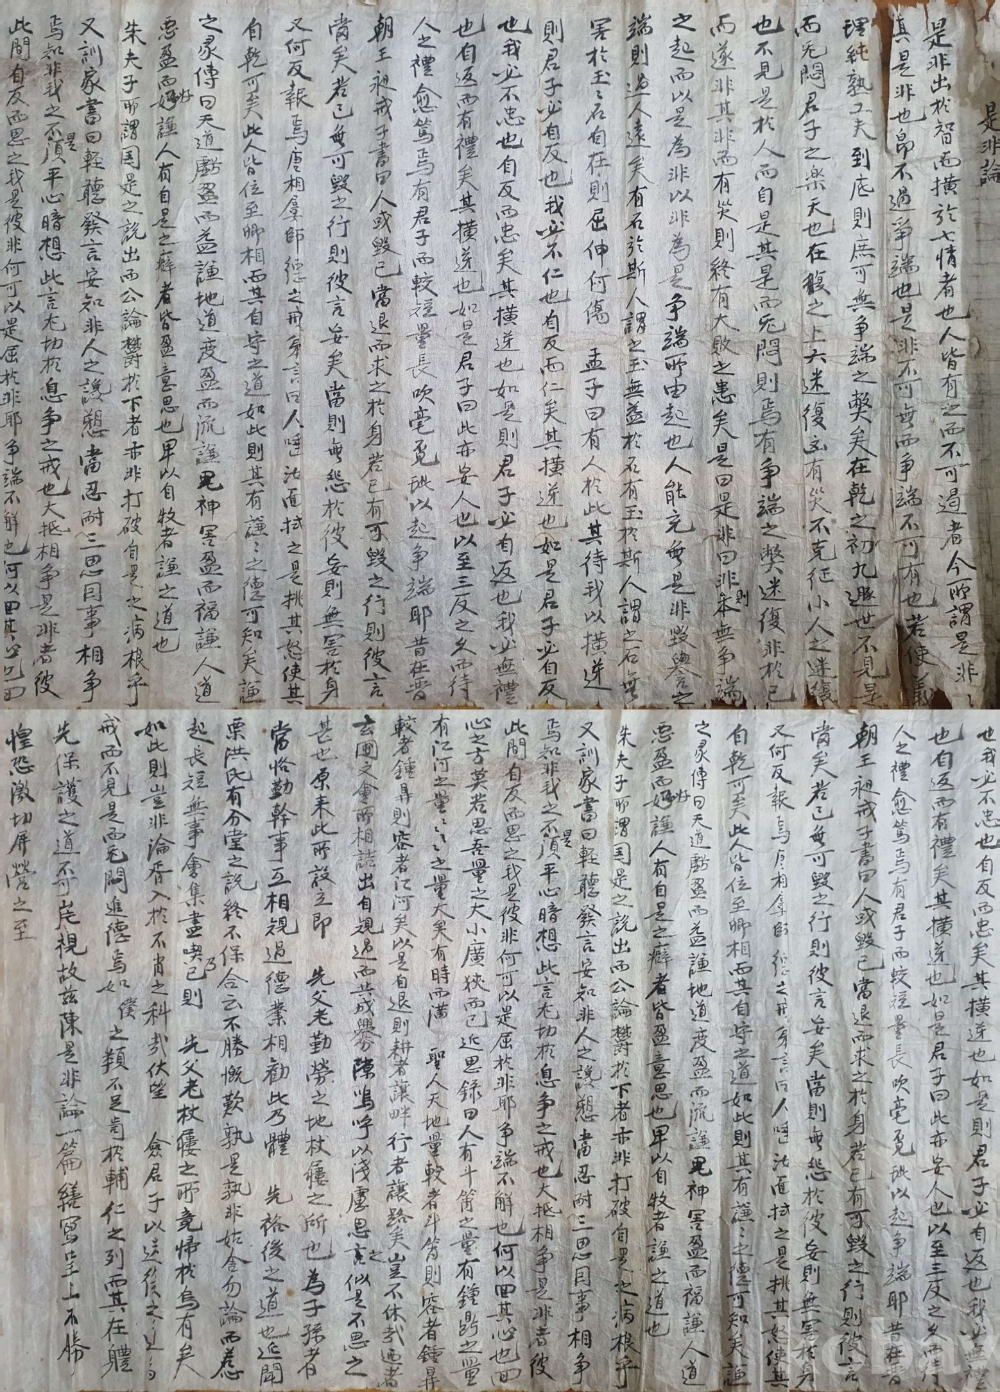 是非論
是非出於智而橫於七情者也人皆有之而不可遏者今所謂是非
其是非也昻不過爭端也是非不可無而爭端不可有也若使義
理純熟工夫到底則庶可無爭端之獘矣在乾之初九遯世不見是
而无悶君子之樂天也在復之上六迷復凶有灾不克征小人之迷復
也不見是於人而自是其是而无悶則焉有爭端之獘迷復非於己
而遂非其非而有灾則終有大敗之患矣是曰是非曰非則本無爭端
之起而以是為非以非為是爭端所由起也人能充無是非毀譽之
端則過人遠矣有石於斯人謂之玉無益於石有玉於斯人謂之石無
害於玉玉石自在則屈伸何傷 孟子曰有人於此其待我以橫逆
則君子必自反也我必不仁也自反而仁矣其橫逆也如是君子必自反
也我必不忠也自反而忠矣其橫逆也如是則君子必自返也我必無禮
也自返而有禮矣其橫逆也如是君子曰此亦妄人也以至三反之久而待
人之禮愈篤焉有君子而較短量長吹毫覓疵以起爭端耶昔在晉
朝王昶戒子書曰人或毀己當退而求之於身若己有可毀之行則彼言
當矣若己無可毀之行則彼言妄矣當則無怨於彼妄則無害於身
又何反報焉唐相婁師德之弟言曰人唾沽直拭之是挑其怒使其
自乾可矣此人皆位至卿相而其自守之道如此則其有謙謙之德可知矣謙
之彖傳曰天道虧盈而益謙地道变盈而流謙鬼神害盈而福謙人道
惡盈而好謙人有自是之癖者皆盈意思也卑以自牧者謙之道也
朱夫子所謂国是之說出而公論欝於下者亦非打破自是之病根乎
又訓家書曰軽聽發言安知非人之譖愬當忍耐三思因事相爭
焉知非我之不是須平心暗想此言尤切於息爭之戒也大抵相爭是非者彼
此間自反而思之我是彼非何可以是屈於非耶爭端不解也何以田其心也田
也我必不忠也自反而忠矣其橫逆也如是則君子必自返也我必無禮
也自返而有禮矣其橫逆也如是君子曰此亦妄人也以至三反之久而待
人之禮愈篤焉有君子而較短量長吹毫覓疵以起爭端耶昔在晉
朝王昶戒子書曰人或毀己當退而求之於身若己有可毀之行則彼言
當矣若己無可毀之行則彼言妄矣當則無怨於彼妄則無害於身
又何反報焉唐相婁師德之弟言曰人唾沽直拭之是挑其怒使其
自乾可矣此人皆位至卿相而其自守之道如此則其有謙謙之德可知矣謙
之彖傳曰天道虧盈而益謙地道变盈而流謙鬼神害盈而福謙人道
惡盈而好謙人有自是之癖者皆盈意思也卑以自牧者謙之道也
朱夫子所謂国是之說出而公論欝於下者亦非打破自是之病根乎
又訓家書曰軽聽發言安知非人之譖愬當忍耐三思因事相爭
焉知非我之不是須平心暗想此言尤切於息爭之戒也大抵相爭是非者彼
此間自反而思之我是彼非何可以是屈於非耶爭端不解也何以田其心也田
心之方莫若思吾量之大小廣狹而已近思錄曰人有斗筲之量有鍾鼎之量
有江河之量江河之量大矣有時而滿 聖人天地量較者斗筲則容者鍾鼎
較者鍾鼎則容者江河矣以是自退則耕者讓畔行者讓路矣豈不休哉西者
玄圃文會所相詰出自規過而共成舉隙嗚呼以淺庸思之言似是不思之
甚也原来此所設立即 先父老勤勞之地杖屨之所也為子孫者
當恪勤幹事互相規過德業相勸此乃體 先裕後之道也近聞
栗洪氏有分堂之說終不保合云不勝慨歎孰是孰非姑舍勿論而惹
起長短無事會集盡喫已則乃 先父老杖屨之所竟帰於烏有矣
如此則豈非淪胥入於不肖之科哉伏望 僉君子以
戒而不見是而无悶進德焉如僕之類不足齒於輔仁之列而其在體
先保護之道不可恝視故玆陳是非論一篇繕寫呈上不勝
惶恐激切屏營之至